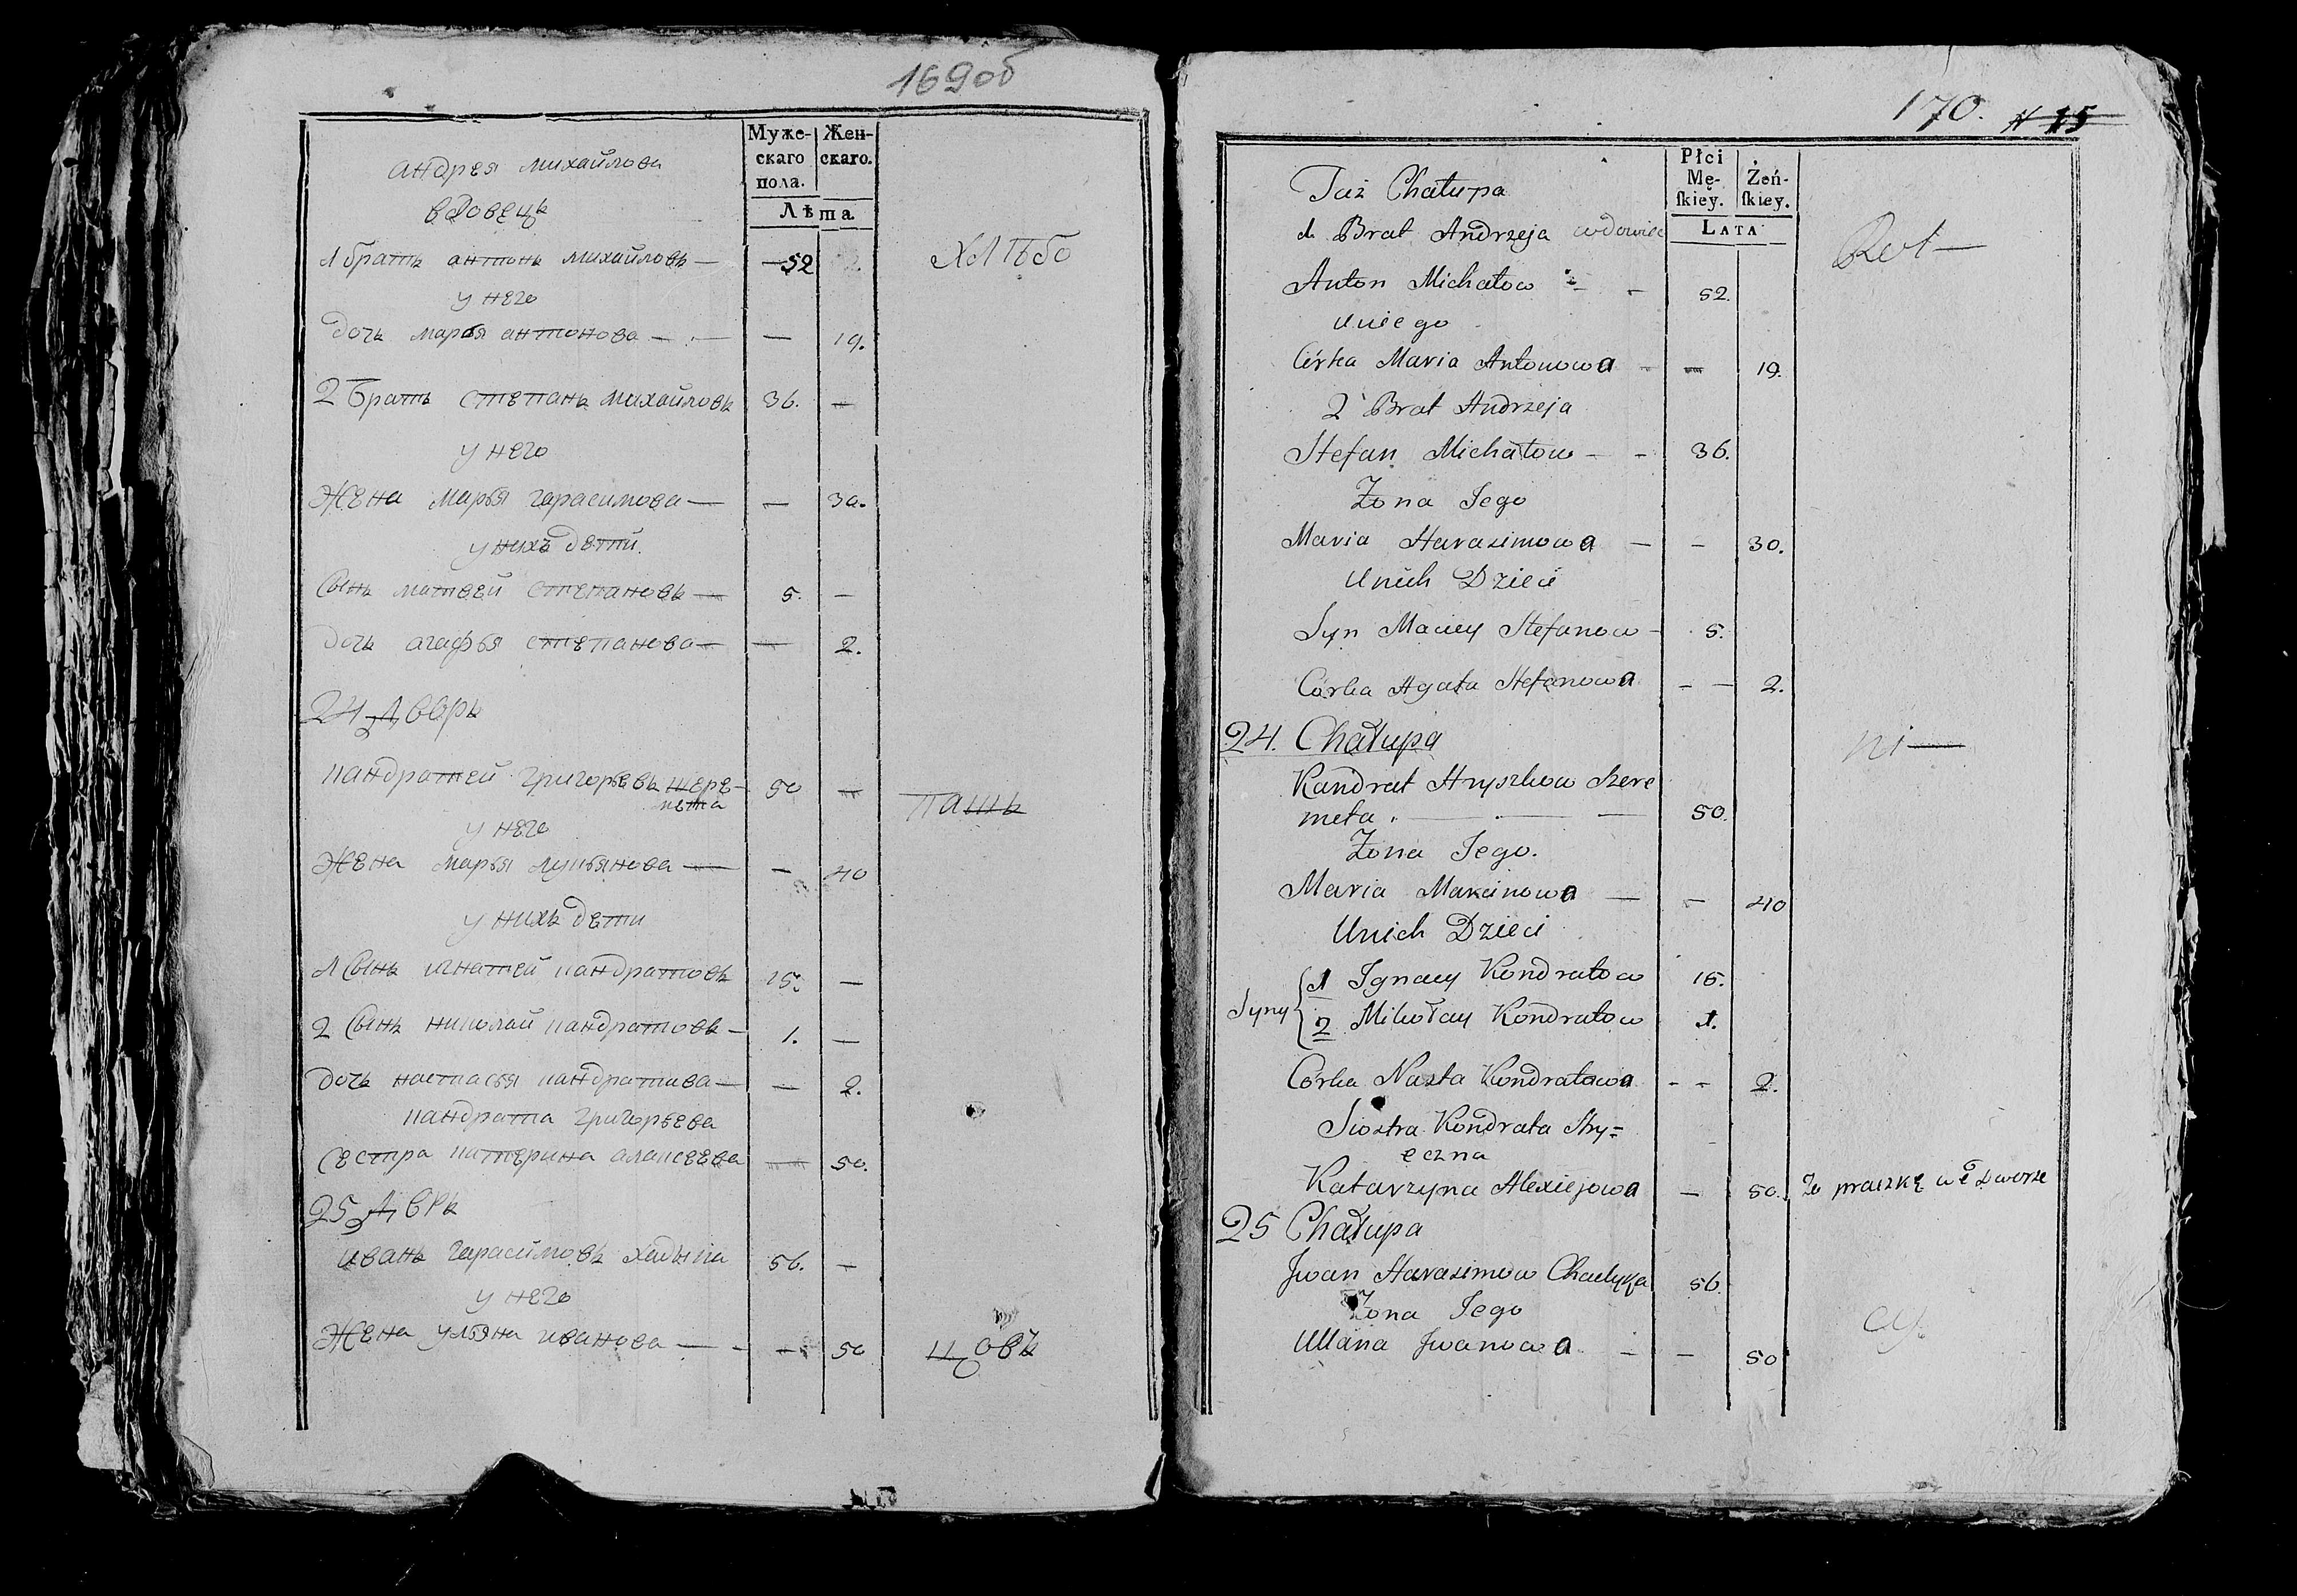 169об
Муже- Жен-
скаго скаго.
пола.
Лѣта.
андрея михайлова
вдовецъ
1 братъ антонъ михайловъ — — 52
хлѣбо
у него
дочь марья антонова — — — 19.
2 братъ степанъ михайловъ 36. —
у него
жена марья гарасимова — — 30.
у нихъ дети
сынъ матвей степановъ — 5. —
дочь агафья степанова — — 2.
24 Дворъ
кандратей григорьевъ шере-
мета 50 —
пашъ
у него
жена марья лукьянова — — 40
у нихъ дети
1 сынъ игнатей кандратовъ 15. —
2 сынъ николай кандратовъ — 1. —
дочь настасья кандратова — — 2.
кандрата григорьева
сестра катерина алаксеева — 50.
25 Дворъ
иванъ гарасимовъ хадыка 56. —
у него
жена ульяна иванова — — — 50
цовъ
170. N 15
Płci
Mę- Żeń-
ſkiey. ſkiey.
LATA
Taż Chałupa
1 Brat Andrzeja wdowiec
Rot —
Anton Michałow — — 52.
Uniego
Córka Maria Antonowa — — 19.
2 Brat Andrzeja
Stefan Michałow — — 36.
Żona Jego
Maria Harasimowa — — 30.
Unich Dzieci
Syn Maciey Stefanow — 5.
Córka Agata Stefanowa — — 2.
24. Chałupa
ni —
Kandrat Hryszkow Szere
meta. — — — 50.
Żona Jego.
Maria Marcinowa — — 40
Unich Dzieci
Syny 1 Ignacy Kondratow 15.
2 Mikołay Kondratow 1.
Córka Nasta Kondratowa - - 2.
Siostra Kondrata Stry=
eczna
Katarzyna Alexiejowa — 50. Za praczkę we Dworze
25 Chałupa
Jwan Harasimow Chadyka 56.
Żona Jego
Ullana Jwanowa — — 50
cy.